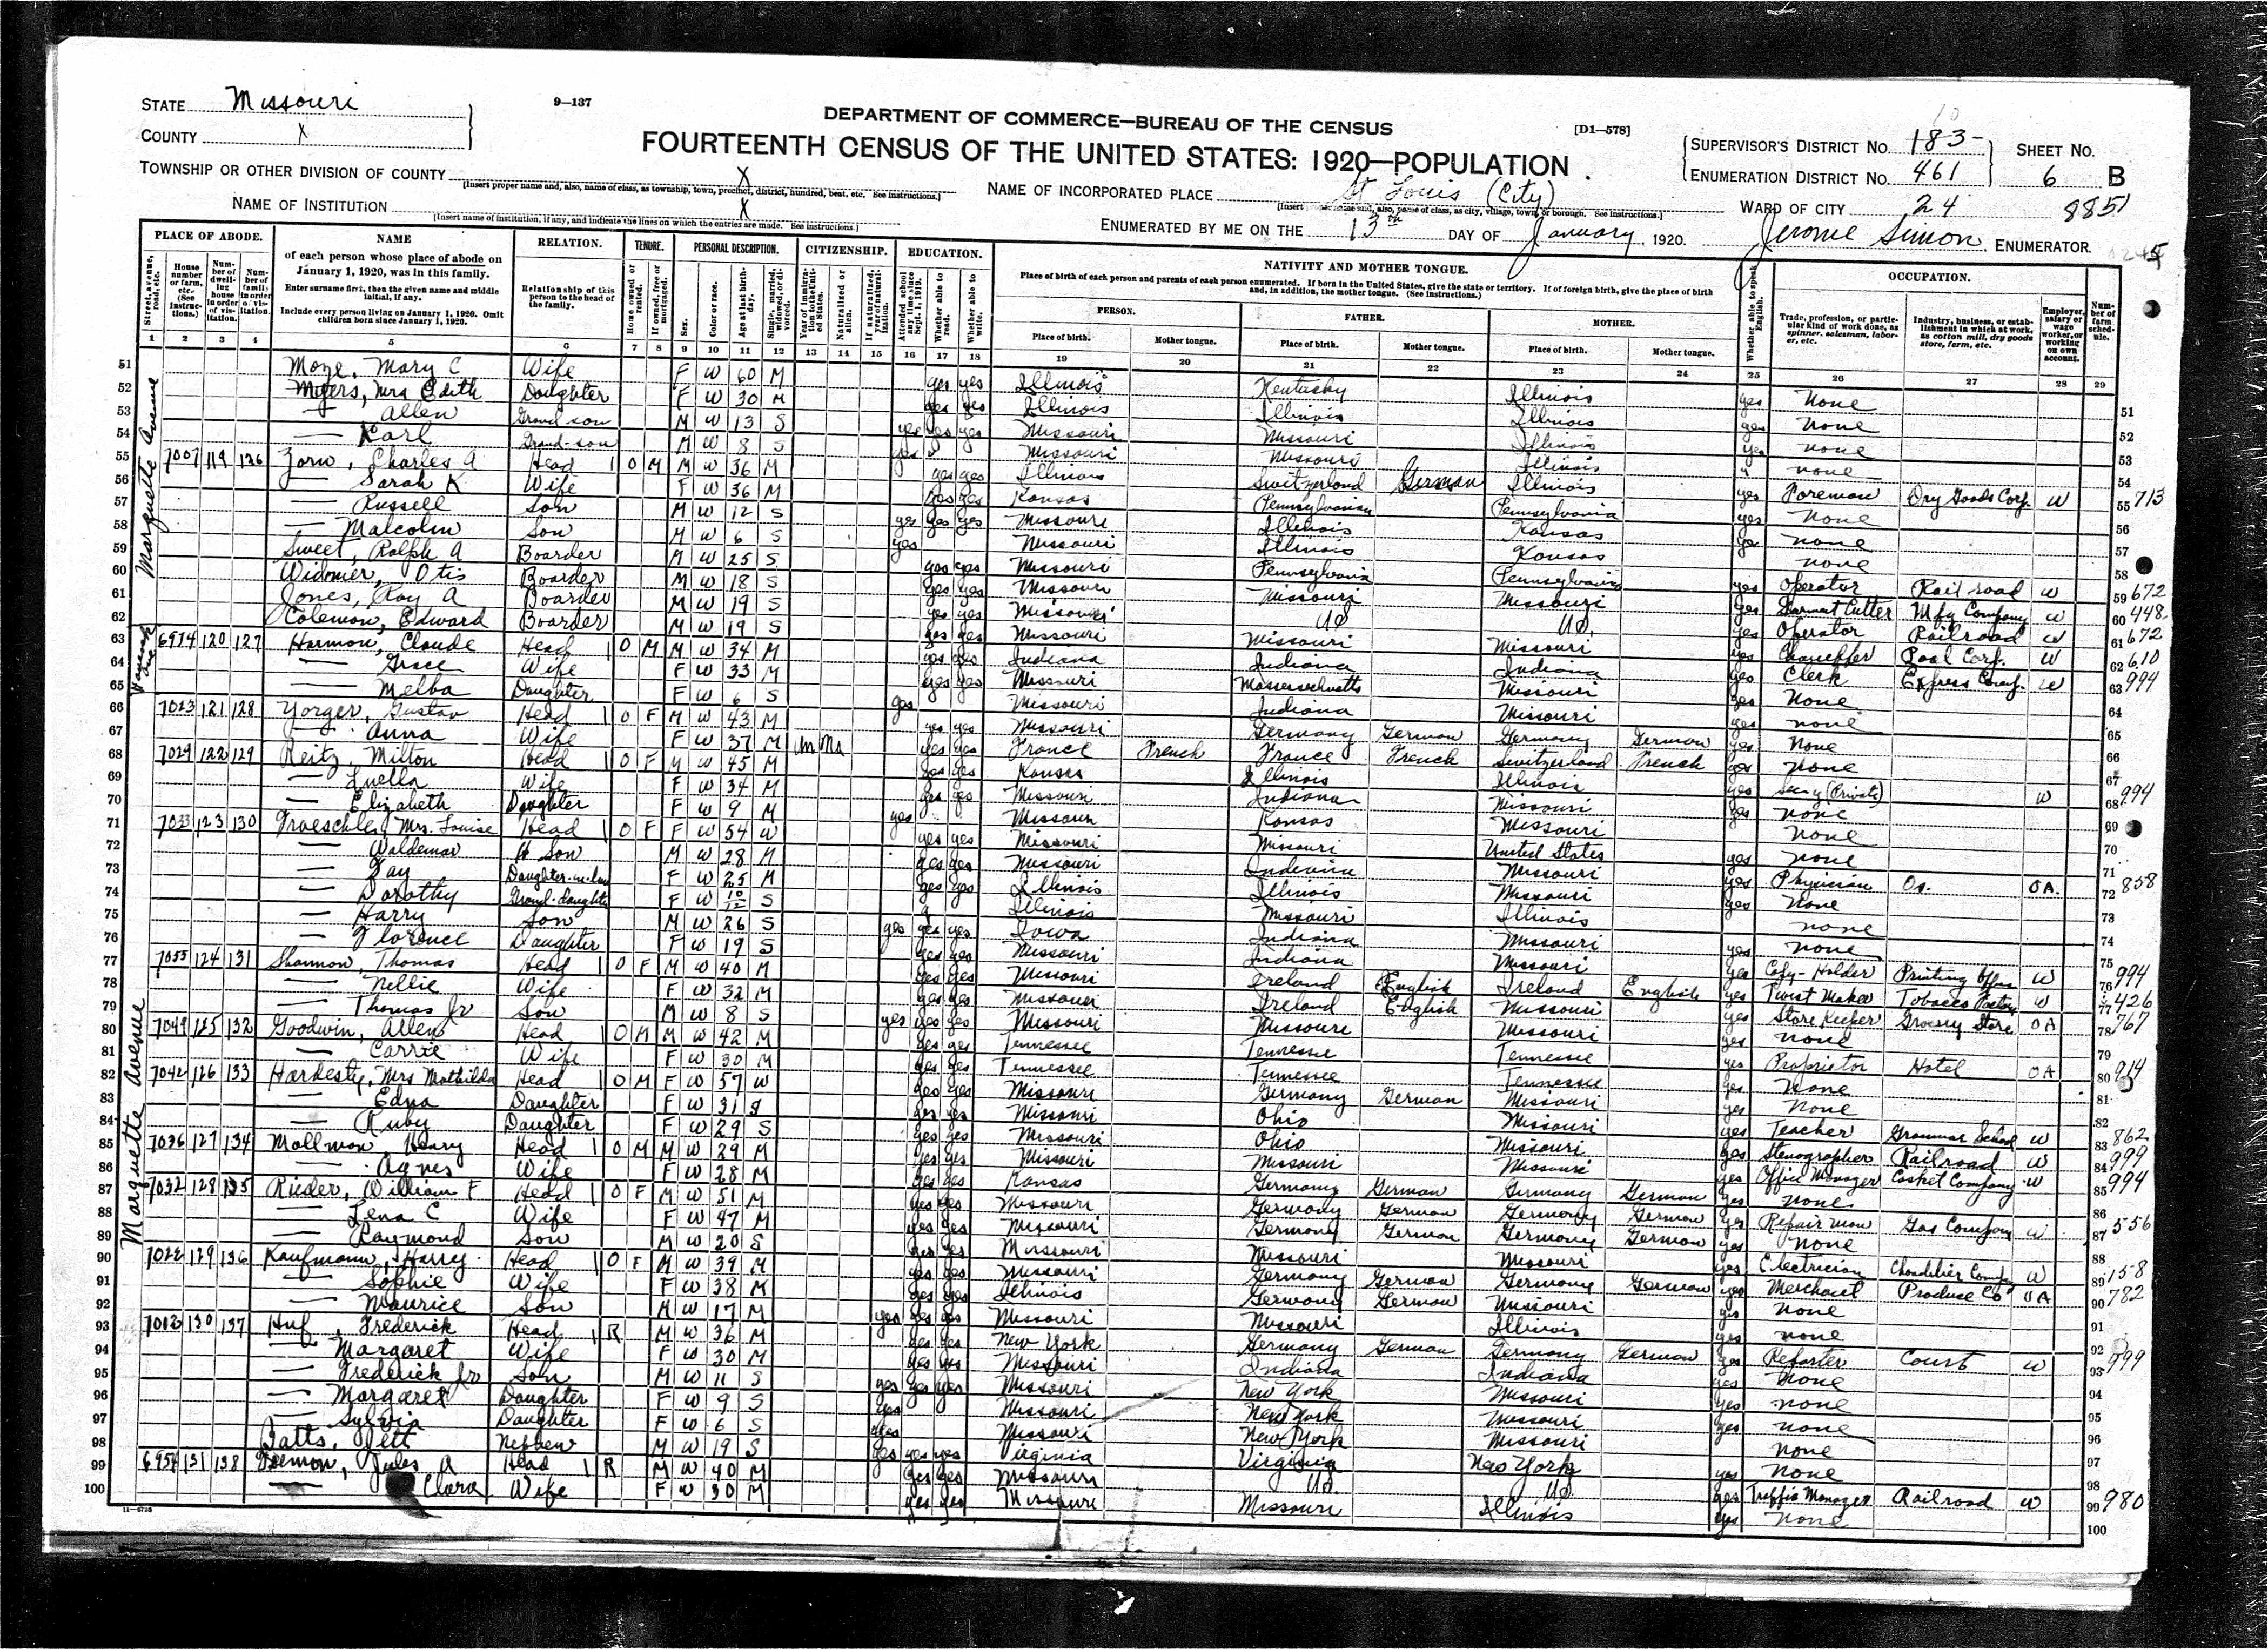 STATE Missouri
9—137
DEPARTMENT OF COMMERCE—BUREAU OF THE CENSUS
[D1—578]
COUNTY X
FOURTEENTH CENSUS OF THE UNITED STATES: 1920—POPULATION
SUPERVISOR'S DISTRICT No. 183
SHEET No.
TOWNSHIP OR OTHER DIVISION OF COUNTY X
[Insert proper name and, also, name of class, as township, town, precinct, district, hundred, beat, etc. See instructions.]
NAME OF INCORPORATED PLACE St Louis (City)
ENUMERATION DISTRICT No. 461
6 B
NAME OF INSTITUTION X
[Insert name of institution, if any, and indicate the lines on which the entries are made. See instructions.]
WARD OF CITY 24
8851
ENUMERATED BY ME ON THE 13th DAY OF January, 1920. Jerome Simon, ENUMERATOR.
PLACE OF ABODE. NAME RELATION. TENURE. PERSONAL DESCRIPTION. CITIZENSHIP. EDUCATION. NATIVITY AND MOTHER TONGUE. OCCUPATION.
of each person whose place of abode on January 1, 1920, was in this family.
Enter surname first, then the given name and middle initial, if any.
Include every person living on January 1, 1920. Omit children born since January 1, 1920.
Relationship of this person to the head of the family.
Place of birth of each person and parents of each person enumerated. If born in the United States, give the state or territory. If of foreign birth, give the place of birth and, in addition, the mother tongue. (See instructions.)
PERSON. FATHER. MOTHER.
Place of birth. Mother tongue. Place of birth. Mother tongue. Place of birth. Mother tongue.
1 2 3 4 5 6 7 8 9 10 11 12 13 14 15 16 17 18 19 20 21 22 23 24 25 26 27 28 29
Marquette Avenue
51 Moze, Mary C Wife F W 60 M yes yes Illinois Kentucky Illinois yes None
52 Myers, Mrs Edith Daughter F W 30 M yes yes Illinois Illinois Illinois yes None
53 — Allen Grand son M W 13 S yes yes yes Missouri Missouri Illinois yes none
54 — Karl Grand-son M W 8 S yes Missouri Missouri Illinois none
55 7007 119 126 Zorn, Charles A Head 1 O M M W 36 M yes yes Illinois Switzerland German Illinois yes Foreman Dry Goods Corp. W 713
56 — Sarah K Wife F W 36 M yes yes Kansas Pennsylvania Pennsylvania yes None
57 — Russell Son M W 12 S yes yes yes Missouri Illinois Kansas yes none
58 — Malcolm Son M W 6 S yes Missouri Illinois Kansas none
59 Sweet, Ralph A Boarder M W 25 S yes yes Missouri Pennsylvania Pennsylvania yes Operator Rail road W 672
60 Widmer, Otis Boarder M W 18 S yes yes Missouri Missouri Missouri yes Garment Cutter Mfg Company W 448
61 Jones, Roy A Boarder M W 19 S yes yes Missouri US US. yes Operator Railroad W 672
62 Coleman, Edward Boarder M W 19 S yes yes Missouri Missouri Missouri yes Chauffer Coal Corp. W 610
63 6974 120 127 Harmon, Claude Head 1 O M M W 34 M yes yes Indiana Indiana Indiana yes Clerk Express Comp. W 994
64 — Grace Wife F W 33 M yes yes Missouri Massersechusetts Missouri yes None
65 — Melba Daughter F W 6 S yes Missouri Indiana Missouri yes none
66 7023 121 128 Yorger, Gustav Head 1 O F M W 43 M yes yes Missouri Germany German Germany German yes None
67 — Anna Wife F W 37 M Un Na yes yes France French France French Switzerland French yes none
68 7029 122 129 Reitz, Milton Head 1 O F M W 45 M yes yes Kansas Illinois Illinois yes Secy (Private) W 994
69 — Luella Wife F W 34 M yes yes Missouri Indiana Missouri yes none
70 — Elizabeth Daughter F W 9 M yes Missouri Kansas Missouri none
71 7033 123 130 Troeschler, Mrs. Louise Head 1 O F F W 54 W yes yes Missouri Missouri United States yes none
72 — Waldemar Son M W 28 M yes yes Missouri Indiana Missouri yes Physician OA. 858
73 — Fay Daughter-in-law F W 25 M yes yes Illinois Illinois Missouri yes None
74 — Dorothy Grand-daughter F W 10/12 S Illinois Missouri Illinois none
75 — Harry Son M W 26 S yes yes yes Iowa Indiana Missouri yes none
76 — Florence Daughter F W 19 S yes yes Missouri Indiana Missouri yes Copy-Holder Printing Office W 994
77 7055 124 131 Shannon, Thomas Head 1 O F M W 40 M yes yes Missouri Ireland English Ireland English yes Twist Maker Tobacco Factory W 426
78 — Nellie Wife F W 32 M yes yes Missouri Ireland English Missouri yes Store Keeper Grocery Store OA 767
79 — Thomas Jr Son M W 8 S yes yes yes Missouri Missouri Missouri yes none
80 7049 125 132 Goodwin, Allen Head 1 O M M W 42 M yes yes Tennessee Tennessee Tennessee yes Proprietor Hotel OA 914
81 — Carrie Wife F W 30 M yes yes Tennessee Tennessee Tennessee yes None
82 7042 126 133 Hardesty, Mrs Mathilda Head 1 O M F W 57 W yes yes Missouri Germany German Missouri yes None
83 — Edna Daughter F W 31 S yes yes Missouri Ohio Missouri yes Teacher Grammar School W 862
84 — Ruby Daughter F W 29 S yes yes Missouri Ohio Missouri yes Stenographer Railroad W 999
85 7036 127 134 Mollman Henry Head 1 O M M W 29 M yes yes Missouri Missouri Missouri yes Office Manager Casket Company W 994
86 — Agnes Wife F W 28 M yes yes Kansas Germany German Germany German yes None
87 7032 128 135 Rieder, William F Head 1 O F M W 51 M yes yes Missouri Germany German Germany German yes Repair man Gas Company W 556
88 — Lena C Wife F W 47 M yes yes Missouri Germany German Germany German yes None
89 — Raymond Son M W 20 S yes yes Missouri Missouri Missouri yes Electrician Chandelier Company W 158
90 7022 129 136 Kaufmann, Harry Head 1 O F M W 39 M yes yes Missouri Germany German Germany German yes Merchant Produce Co OA 782
91 — Sophie Wife F W 38 M yes yes Illinois Germany German Missouri yes None
92 — Maurice Son M W 17 M yes yes yes Missouri Missouri Illinois yes none
93 7012 130 137 Huf, Frederick Head 1 R M W 36 M yes yes New York Germany German Germany German yes Reporter Court W 999
94 — Margaret Wife F W 30 M yes yes Missouri Indiana Indiana yes None
95 — Frederick Jr Son M W 11 S yes yes yes Missouri New York Missouri yes none
96 — Margaret Daughter F W 9 S yes Missouri New York Missouri yes none
97 — Sylvia Daughter F W 6 S yes Missouri New York Missouri none
98 Batts, Nephew M W 19 S yes yes yes Virginia Virginia New York yes None
99 6954 131 138 Jules A Head 1 R M W 40 M yes yes Missouri US US yes Traffic Manager Railroad W 980
100 — Clara Wife F W 30 M yes yes Missouri Missouri Illinois yes none